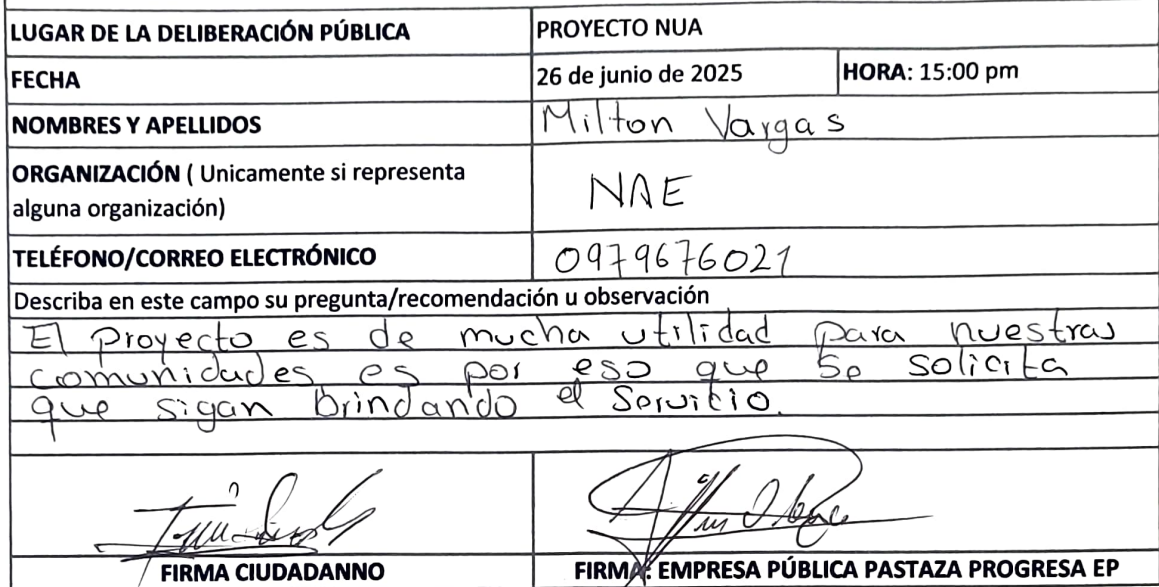 LUGAR DE LA DELIBERACIÓN PÚBLICA PROYECTO NUA
FECHA 26 de junio de 2025 HORA: 15:00 pm
NOMBRES Y APELLIDOS Milton Vargas
ORGANIZACIÓN ( Unicamente si representa
alguna organización) NAE
TELÉFONO/CORREO ELECTRÓNICO 0979676021
Describa en este campo su pregunta/recomendación u observación
El Proyecto es de mucha utilidad para nuestras
comunidades es por eso que se solicita
que sigan brindando el Servicio.
FIRMA CIUDADANNO FIRMA: EMPRESA PÚBLICA PASTAZA PROGRESA EP